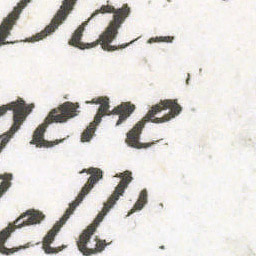 Da-
gere
dell'